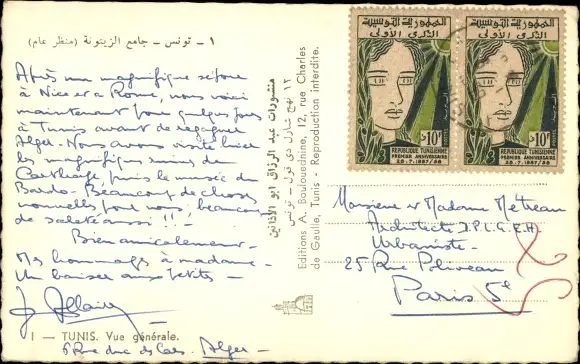 ١ - تونس - جامع الزيتونة (منظر عام)
Après un magnifique séjour
à Nice et à Rome, nous voici
maintenant pour quelques jours
à Tunis avant de regagner
Alger - Nous avons visité hier
les magnifiques ruines de
Carthage puis le musée du
Bardo - Beaucoup de choses
nouvelles pour nous, beaucoup
de saleté aussi !!! -
Bien amicalement -
Mes hommages à madame -
Un baiser aux petits -
1 - TUNIS. Vue générale.
6 Rue duc des Cars. Alger -
منشورات عبد الرزاق ابو الاذانين
١٢ نهج شارل دي قول - تونس
Editions A. Boulouednine, 12, rue Charles
de Gaulle, Tunis - Reproduction interdite.
الجمهورية التونسية
الذكرى الأولى
10F
REPUBLIQUE TUNISIENNE
PREMIER ANNIVERSAIRE
25-7-1957/58
الجمهورية التونسية
الذكرى الأولى
10F
REPUBLIQUE TUNISIENNE
PREMIER ANNIVERSAIRE
25-7-1957/58
Monsieur et Madame Métreau
Architecte D.P.L.G.E.H.
Urbaniste -
25 Rue Poliveau
Paris 5e